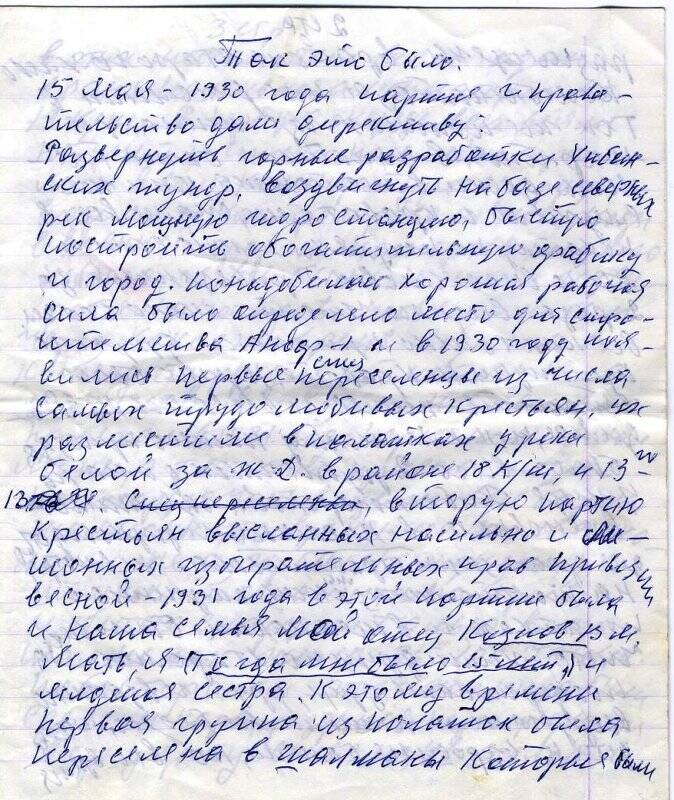 Так это было.
15 мая - 1930 года партия и прави-
тельство дали директиву:
Развернуть горные разработки Хибин-
ских тундр, воздвигнуть на базе северных
рек мощную гидростанцию, быстро
построить обогатительную фабрику
и город. Понадобилась хорошая рабочая
сила было определено место для стро-
ительства и в 1930 году поя-
вились первые спец
переселенцы из числа
самых трудолюбивых крестьян, их
разместили в палатках у реки
белой за ж.д. в районе 18 к/м, и 13
13 Спецпереселенка, вторую партию
крестьян высланных насильно и ли-
шонных избирательных прав привезли
весной - 1931 года в этой партии была
и наша семья мой отец Козлов В М,
мать, я (Тогда мне было 15 лет,) и
младшая сестра. К этому времени
первая группа из палаток была
переселена в шалманы которые были